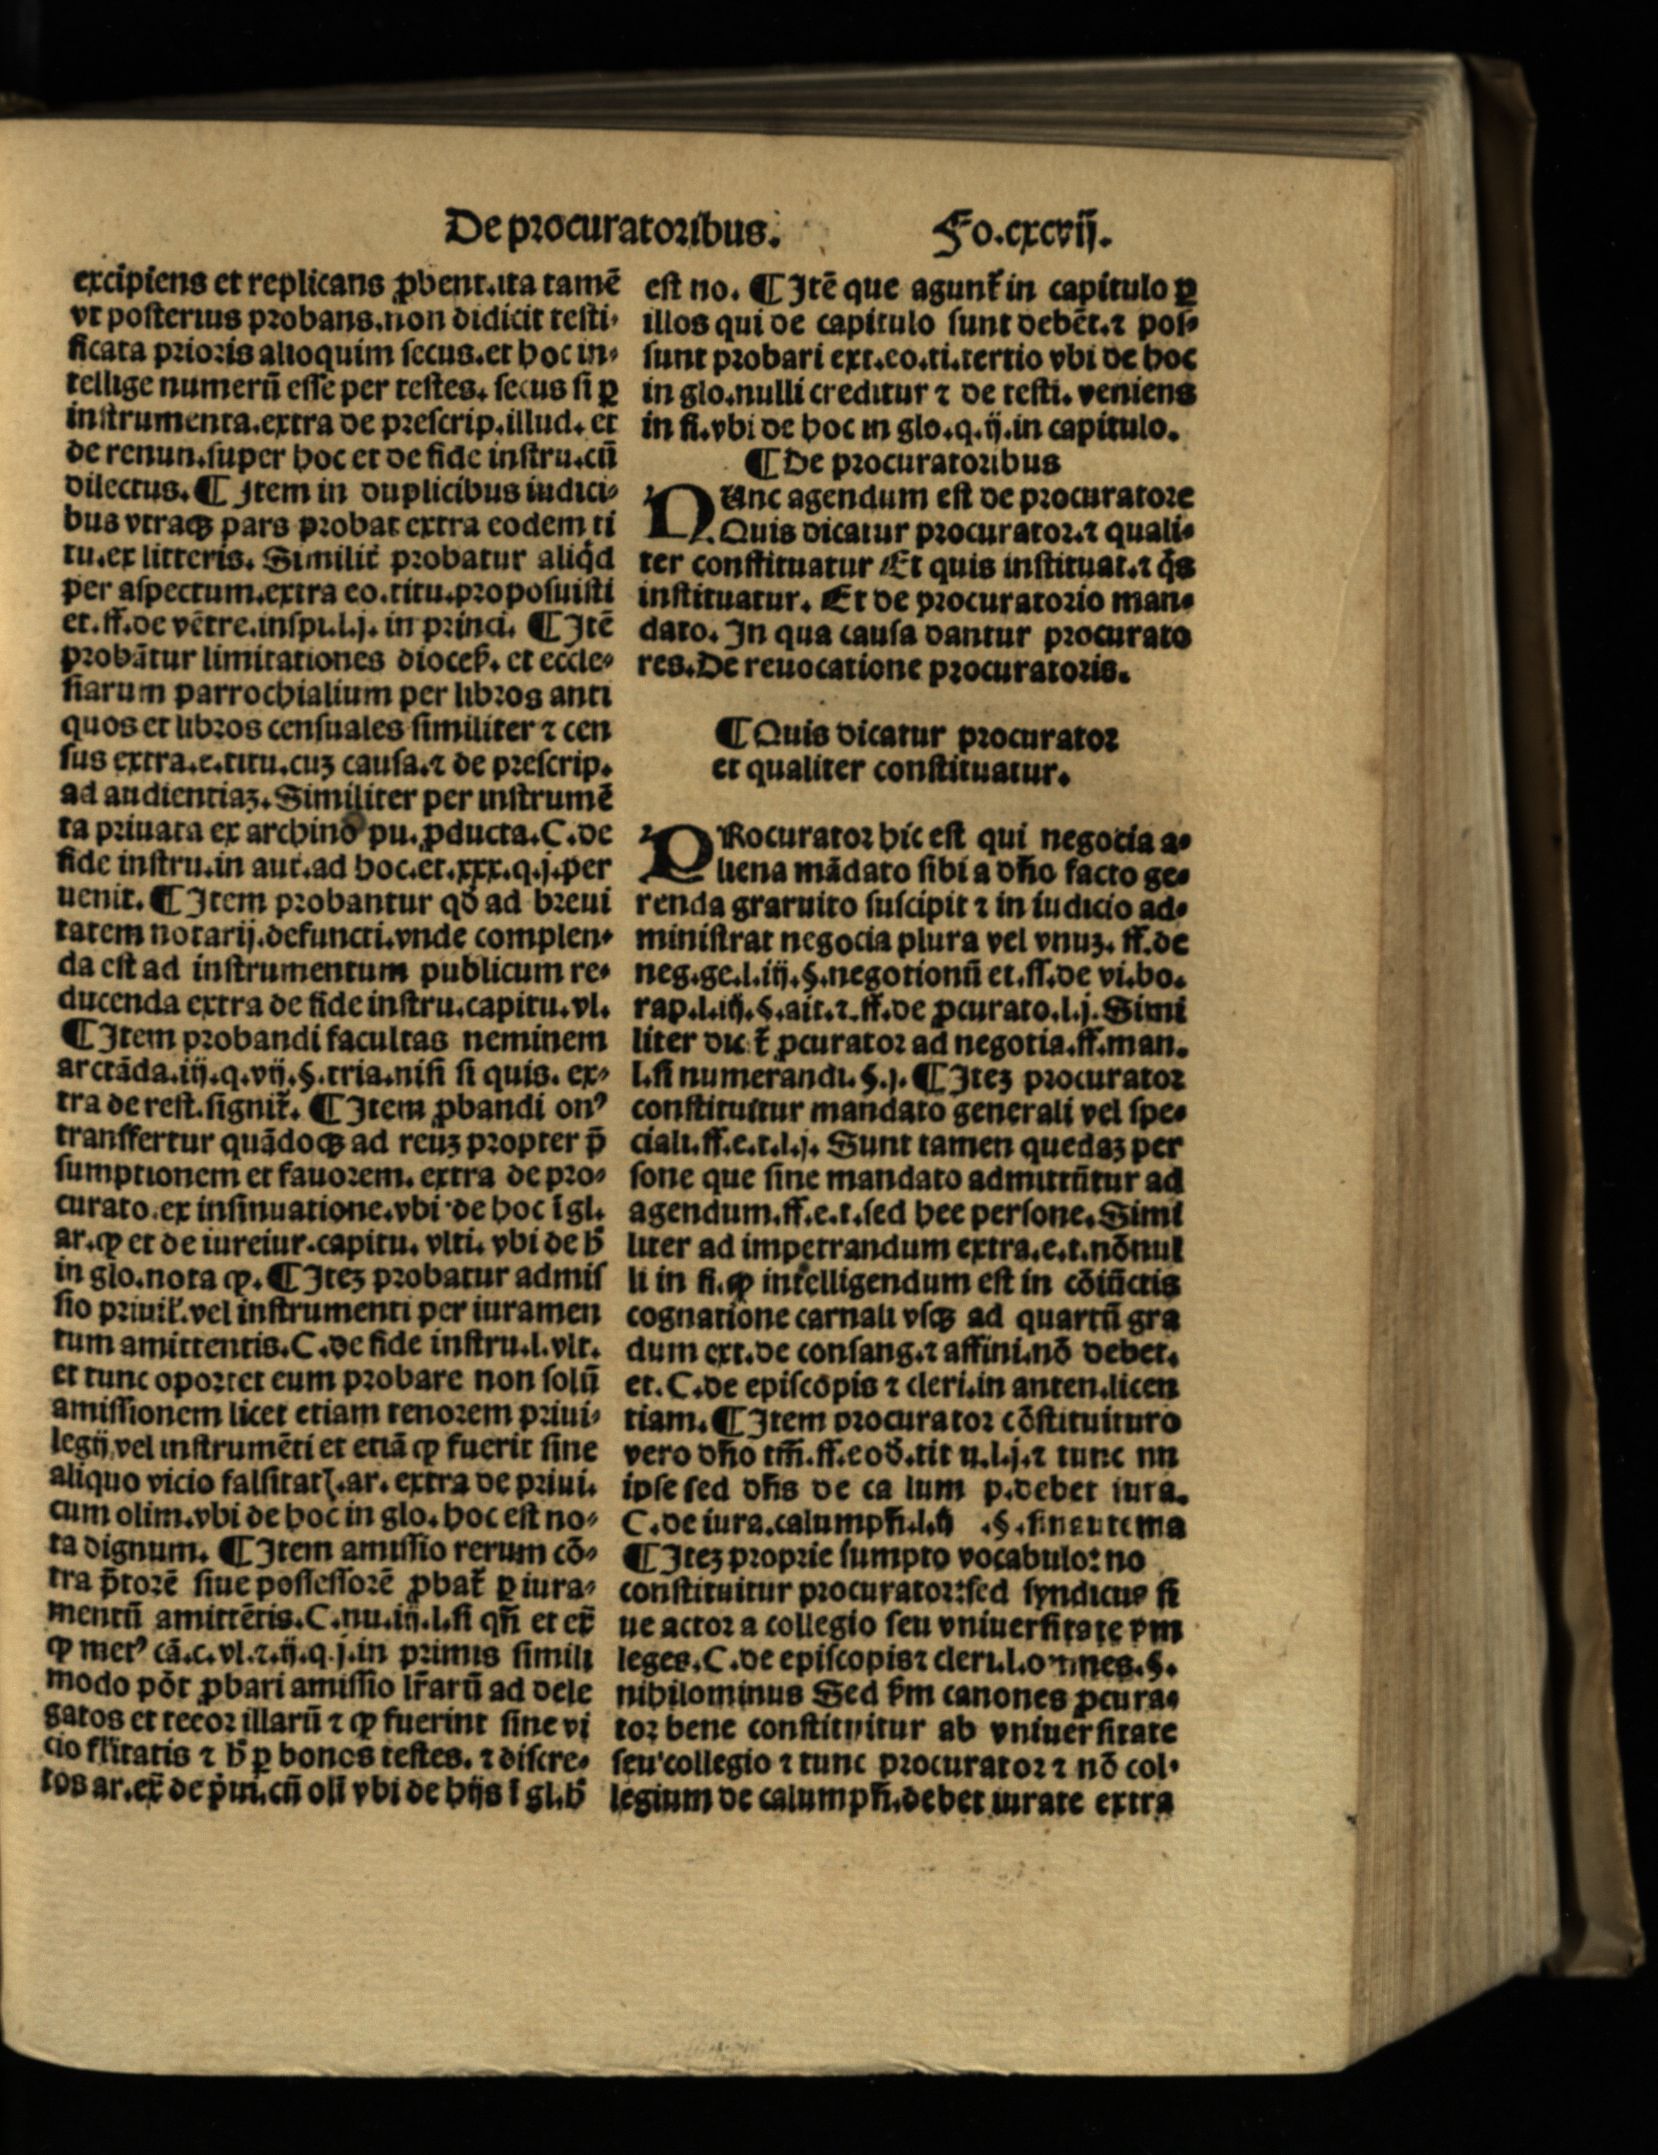 De procuratoribus. Fo.cxcvij.
excipiens et replicans ꝓbent.ita tamē
vt posterius probans.non didicit testi-
ficata prioris alioquim secus.et hoc in-
tellige numerū esse per testes. secus si ꝑ
instrumenta.extra de prescrip.illud. et
de renun.super hoc et de fide instru.cū
dilectus. ¶ Item in duplicibus iudici-
bus vtraqꝫ pars probat extra eodem ti
tu.ex litteris. Similit̃ probatur aliqd̓
per aspectum.extra eo.titu.proposuisti
et.ff.de vētre.inspi.l.j. in princi. ¶ Itē
probātur limitationes dioceẜ. et eccle-
siarum parrochialium per libros anti
quos et libros censuales similiter ⁊ cen
sus extra.e.titu.cuꝫ causa.⁊ de prescrip.
ad audientiaꝫ. Similiter per instrumē
ta priuata ex archino pu. ꝓducta. C. de
fide instru.in aut.ad hoc.et.xxx.q.j.per
uenit. ¶ Item probantur qd̓ ad breui
tatem notarij.defuncti.vnde complen-
da est ad instrumentum publicum re-
ducenda extra de fide instru.capitu.vl.
¶ Item probandi facultas neminem
arctāda.iij.q.vij.§.tria.nisi si quis. ex-
tra de rest.signit̃. ¶ Item ꝓbandi onꝰ
transfertur quādoqꝫ ad reuꝫ propter p̄
sumptionem et fauorem. extra de pro-
curato.ex insinuatione.vbi de hoc ī gl.
ar.ꝙ et de iureiur.capitu. vlti. vbi de h̓
in glo.nota ꝙ. ¶ Iteꝫ probatur admis
sio priuil̃.vel instrumenti per iuramen
tum amittentis. C. de fide instru.l.vlt.
et tunc oportet eum probare non solū
amissionem licet etiam tenorem priui-
legij vel instrumēti et etiā ꝙ fuerit sine
aliquo vicio falsitatꝭ.ar. extra de priui.
cum olim.vbi de hoc in glo. hoc est no-
ta dignum. ¶ Item amissio rerum cō-
tra p̄torē siue possessorē ꝓbat̃ ꝑ iura-
mentū amittētis. C. nu.iij.l.si qn̄ et ex̄
ꝙ metꝰ cā.c.vl.⁊.ij.q.j.in primis simili
modo pōt ꝓbari amissio lr̄arū ad dele
gatos et tecor illarū ⁊ ꝙ fuerint sine vi
cio fl̄itatis ⁊ h̓ ꝑ bonos testes. ⁊ discre-
tos ar.ex̄ de p̓ui.cū oli vbi de hijs ī gl.h̓
est no. ¶ Itē que agunt̃ in capitulo ꝑ
illos qui de capitulo sunt debēt.⁊ pos-
sunt probari ext.eo.ti.tertio vbi de hoc
in glo.nulli creditur ⁊ de testi. veniens
in fi.vbi de hoc in glo.q.ij.in capitulo.
¶ De procuratoribus
NUnc agendum est de procuratore
.Quis dicatur procurator.⁊ quali-
ter constituatur Et quis instituat.⁊ q̓s
instituatur. Et de procuratorio man-
dato. In qua causa dantur procurato
res. De reuocatione procuratoris.
¶ Quis dicatur procurator
et qualiter constituatur.
PRocurator hic est qui negocia a-
liena mādato sibi a dn̄o facto ge-
renda gratuito suscipit ⁊ in iudicio ad-
ministrat negocia plura vel vnuꝫ. ff.de
neg.ge.l.iij.§.negotionū et.ff.de vi.bo.
rap.l.iij.§.ait.⁊.ff.de ꝓcurato.l.j. Simi
liter dic t̃ ꝓcurator ad negotia.ff.man.
l.si numerandi.§.j. ¶ Iteꝫ procurator
constituitur mandato generali vel spe-
ciali.ff.e.t.l.j. Sunt tamen quedaꝫ per
sone que sine mandato admittūtur ad
agendum.ff.e.t.sed hee persone. Simi
liter ad impetrandum extra.e.t.nōnul
li in fi.ꝙ intelligendum est in cōiūctis
cognatione carnali vsqꝫ ad quartū gra
dum ext.de consang.⁊ affini.nō debet.
et. C. de episcopis ⁊ cleri.in anten.licen
tiam. ¶ Item procurator cōstituituro
vero dn̄o tm̄.ff.eod̓.tit n.l.j.⁊ tunc nn
ipse sed dn̄s de ca lum p.debet iura.
C. de iura.calumpn̄.l.ij .§.sinautema
¶ Iteꝫ proprie sumpto vocabulo: no
constituitur procurator:sed syndicus si
ue actor a collegio seu vniuersitate ẜm
leges. C. de episcopis⁊ cleri.l.omnes.§.
nihilominus Sed ẜm canones ꝓcura-
tor bene constituitur ab vniuersitate
seu collegio ⁊ tunc procurator ⁊ nō col-
legium de calumpn̄.debet iurate extra